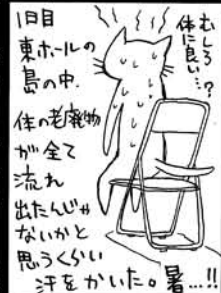 1日目
東ホールの
島の中.
体の老廃物
が全て
流れ
出たんじゃ
ないかと
思うくらい
汗をかいた。暑…!!
むしろ
体に良い…?